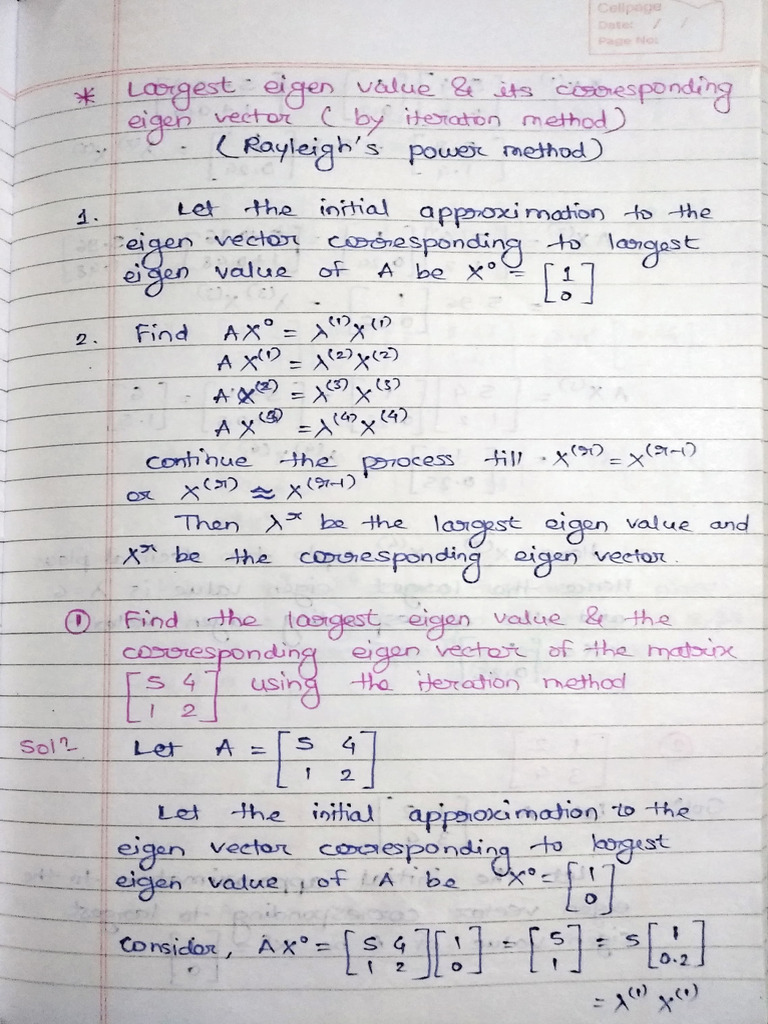 Cellpage
Date: / /
Page No:
* Largest eigen value & its corresponding
eigen vector (by iteration method)
(Rayleigh's power method)
1. Let the initial approximation to the
eigen vector corresponding to largest
eigen value of A be X⁰ = [1 0]
2. Find AX⁰ = λ⁽¹⁾X⁽¹⁾
AX⁽¹⁾ = λ⁽²⁾X⁽²⁾
AX⁽²⁾ = λ⁽³⁾X⁽³⁾
AX⁽³⁾ = λ⁽⁴⁾X⁽⁴⁾
continue the process till X⁽ʳ⁾ = X⁽ʳ⁻¹⁾
or X⁽ʳ⁾ ≈ X⁽ʳ⁻¹⁾
Then λʳ be the largest eigen value and
Xʳ be the corresponding eigen vector.
① Find the largest eigen value & the
corresponding eigen vector of the matrix
[5 4; 1 2] using the iteration method
Solⁿ Let A = [5 4; 1 2]
Let the initial approximation to the
eigen vector corresponding to largest
eigen value, of A be X⁰ = [1 0]
Consider, AX⁰ = [5 4; 1 2] [1 0] = [5 1] = 5 [1 0.2]
= λ⁽¹⁾ X⁽¹⁾